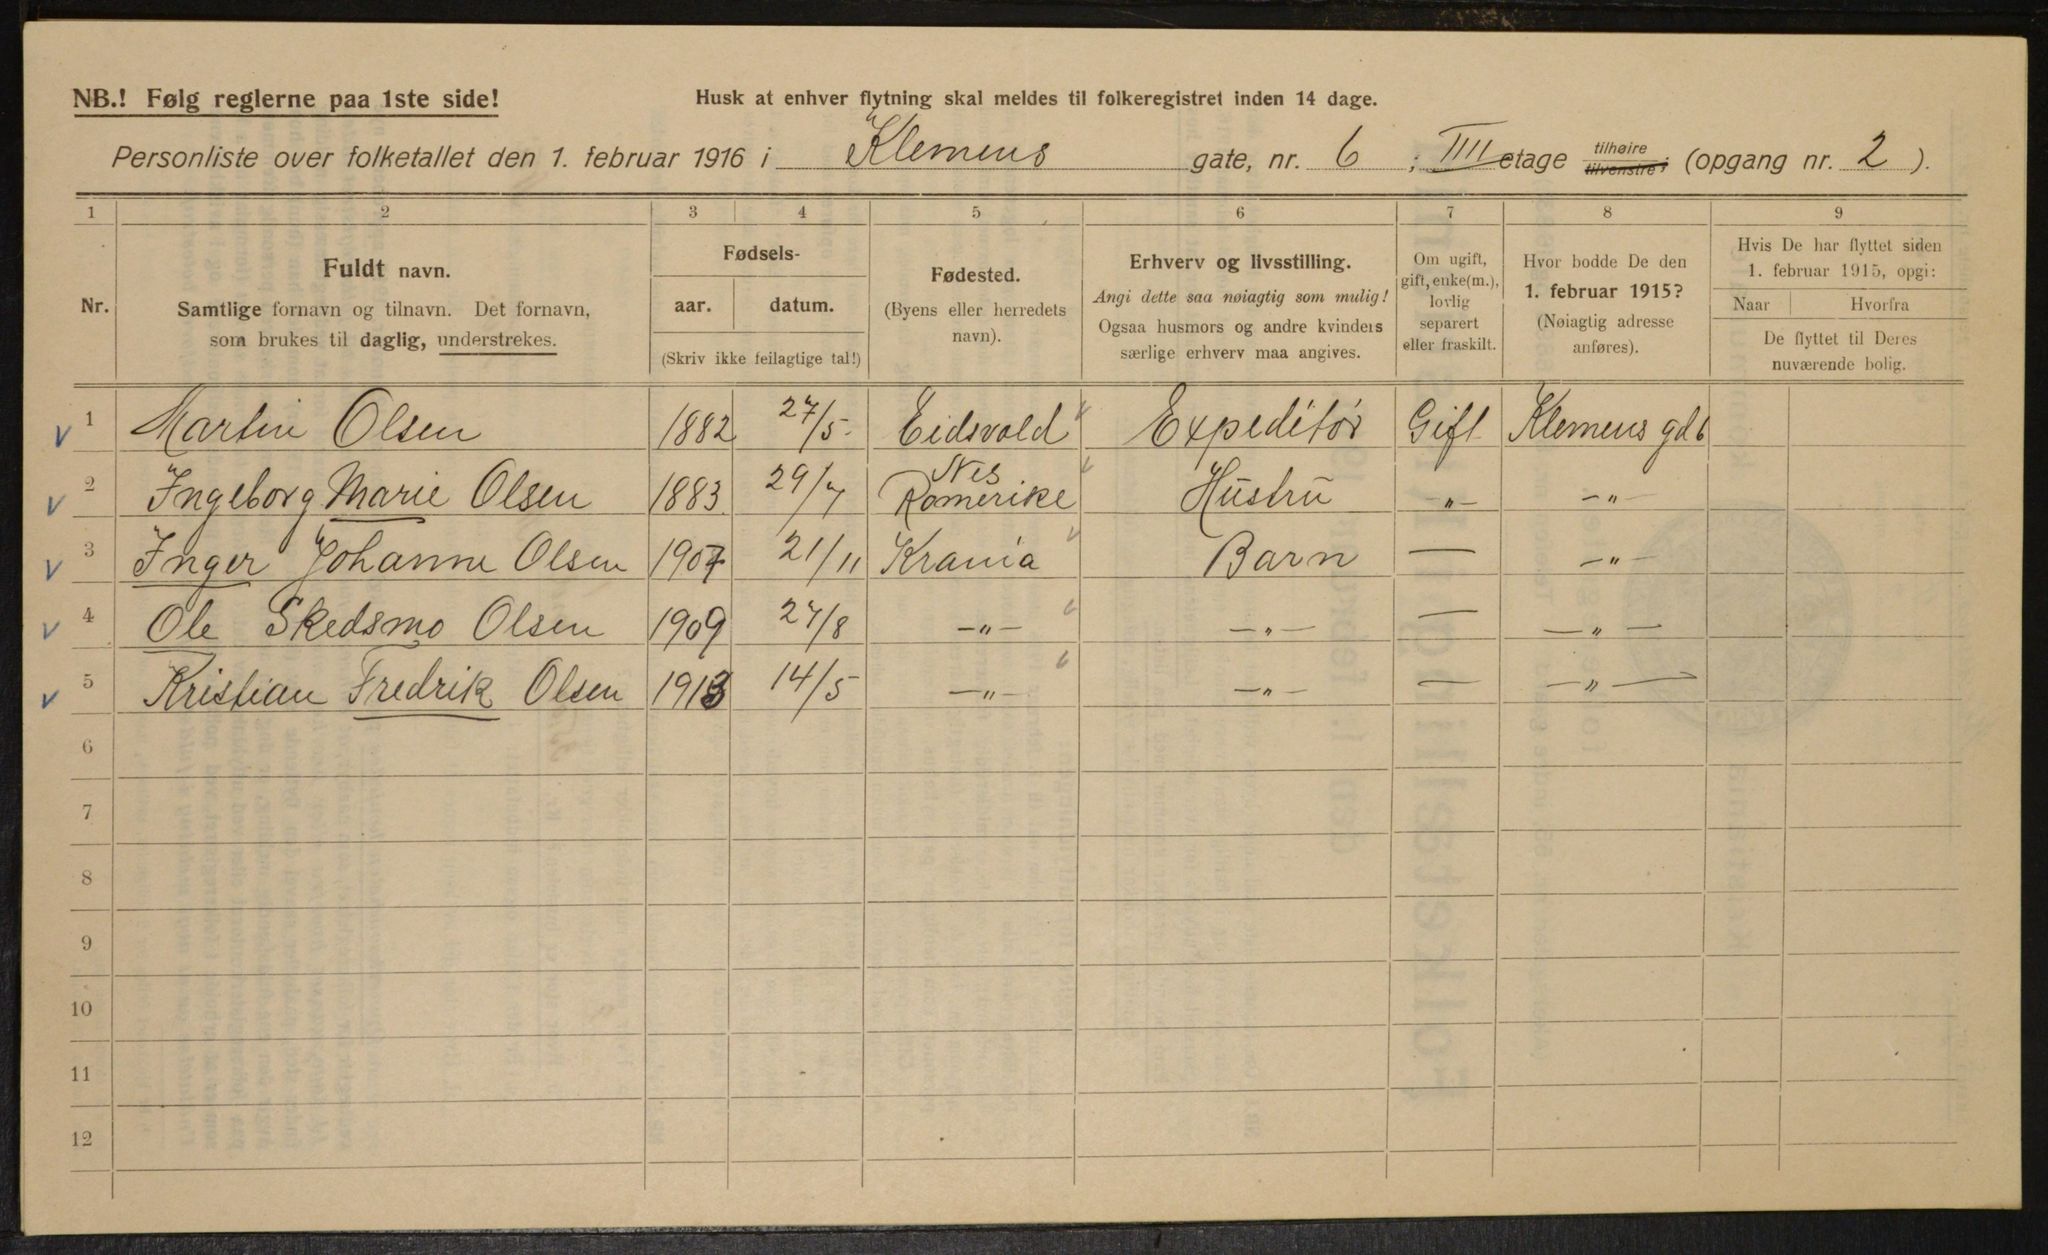 NB.! Følg reglerne paa 1ste side!
Husk at enhver flytning skal meldes til folkeregistret inden 14 dage.
Personliste over folketallet den 1. februar 1916 i Klemens gate, nr. 6 ; IIII etage tilhøire tilvenstre; (opgang nr. 2 ).
1 2 3 4 5 6 7 8 9
Nr.
Fuldt navn.
Samtlige fornavn og tilnavn. Det fornavn,
som brukes til daglig, understrekes.
Fødsels-
aar. datum.
(Skriv ikke feilagtige tal!)
Fødested.
(Byens eller herredets
navn).
Erhverv og livsstilling.
Angi dette saa nøiagtig som mulig!
Ogsaa husmors og andre kvinders
særlige erhverv maa angives.
Om ugift,
gift, enke(m.),
lovlig
separert
eller fraskilt.
Hvor bodde De den
1. februar 1915?
(Nøiagtig adresse
anføres).
Hvis De har flyttet siden
1. februar 1915, opgi:
Naar Hvorfra
De flyttet til Deres
nuværende bolig.
1 Martin Olsen 1882 27/5 Eidsvold Expeditør Gift Klemens gd 6
2 Ingeborg Marie Olsen 1883 29/7 Nes Romerike Hustru -„- -„-
3 Inger Johanne Olsen 1907 21/11 Krania Barn — -„-
4 Ole Skedsmo Olsen 1909 27/8 -„- -„- — -„-
5 Kristian Fredrik Olsen 1913 14/5 -„- -„- — -„-
6
7
8
9
10
11
12